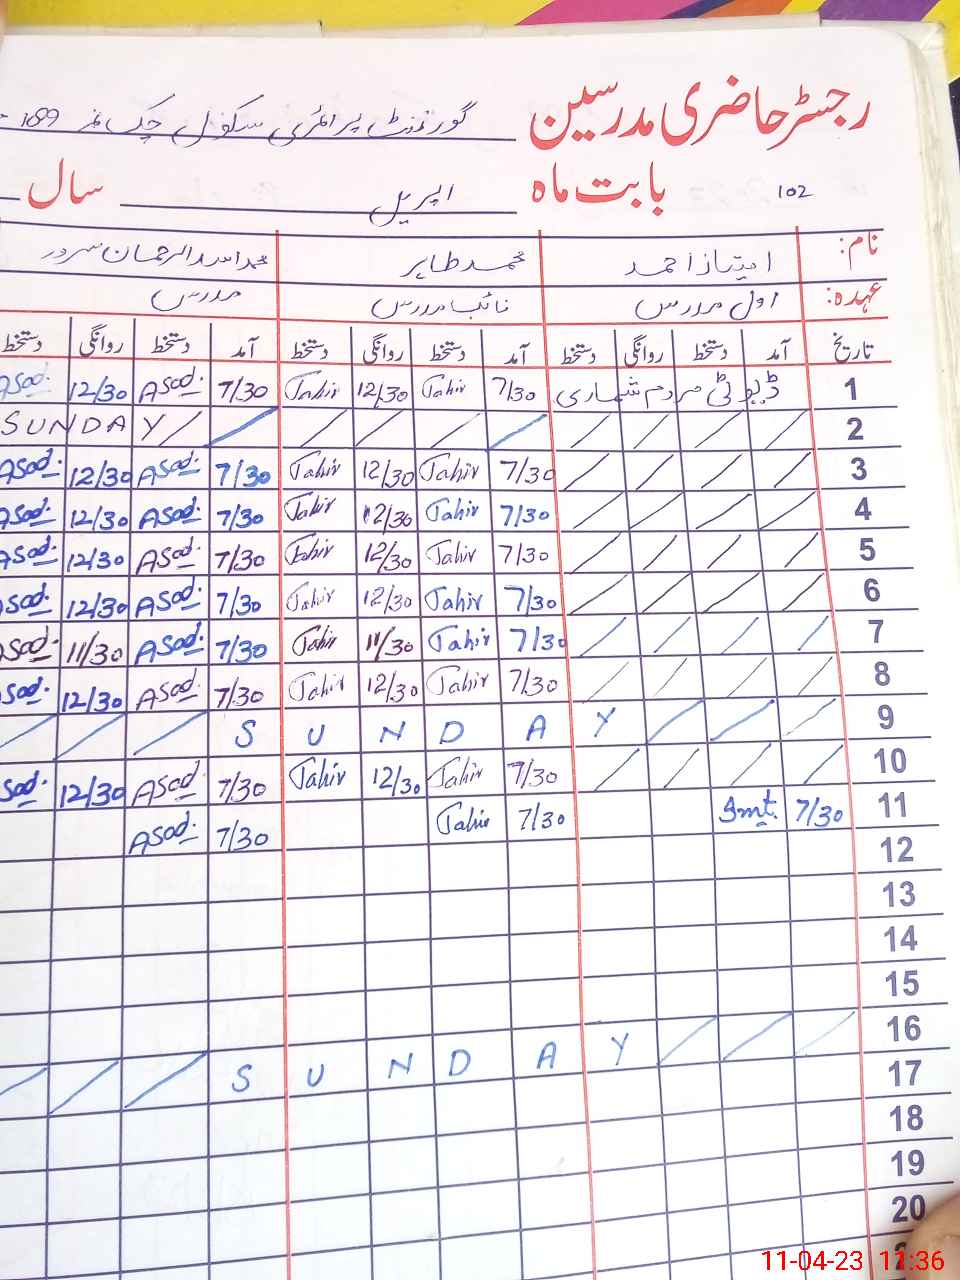 رجسٹر حاضری مدرسین گورنمنٹ پرائمری سکول چک نمبر 189
102 بابت ماہ اپریل سال
نام: امتیاز احمد محمد طاہر محمد اسد الرحمان سرور
عہدہ: اول مدرس نائب مدرس مدرس
تاریخ آمد دستخط روانگی دستخط آمد دستخط روانگی دستخط آمد دستخط روانگی دستخط
1 ڈیوٹی مردم شماری 7/30 Tahir 12/30 Tahir 7/30 Asad. 12/30 Asad.
2 SUNDAY
3 7/30 Tahir 12/30 Tahir 7/30 Asad. 12/30 Asad.
4 7/30 Tahir 12/30 Tahir 7/30 Asad. 12/30 Asad.
5 7/30 Tahir 12/30 Tahir 7/30 Asad. 12/30 Asad.
6 7/30 Tahir 12/30 Tahir 7/30 Asad. 12/30 Asad.
7 7/30 Tahir 11/30 Tahir 7/30 Asad. 11/30 Asad.
8 7/30 Tahir 12/30 Tahir 7/30 Asad. 12/30 Asad.
9 SUNDAY
10 7/30 Tahir 12/30 Tahir 7/30 Asad. 12/30 Asad.
11 7/30 Imt. 7/30 Tahir 7/30 Asad.
12
13
14
15
16 SUNDAY
17
18
19
20
11-04-23 11:36